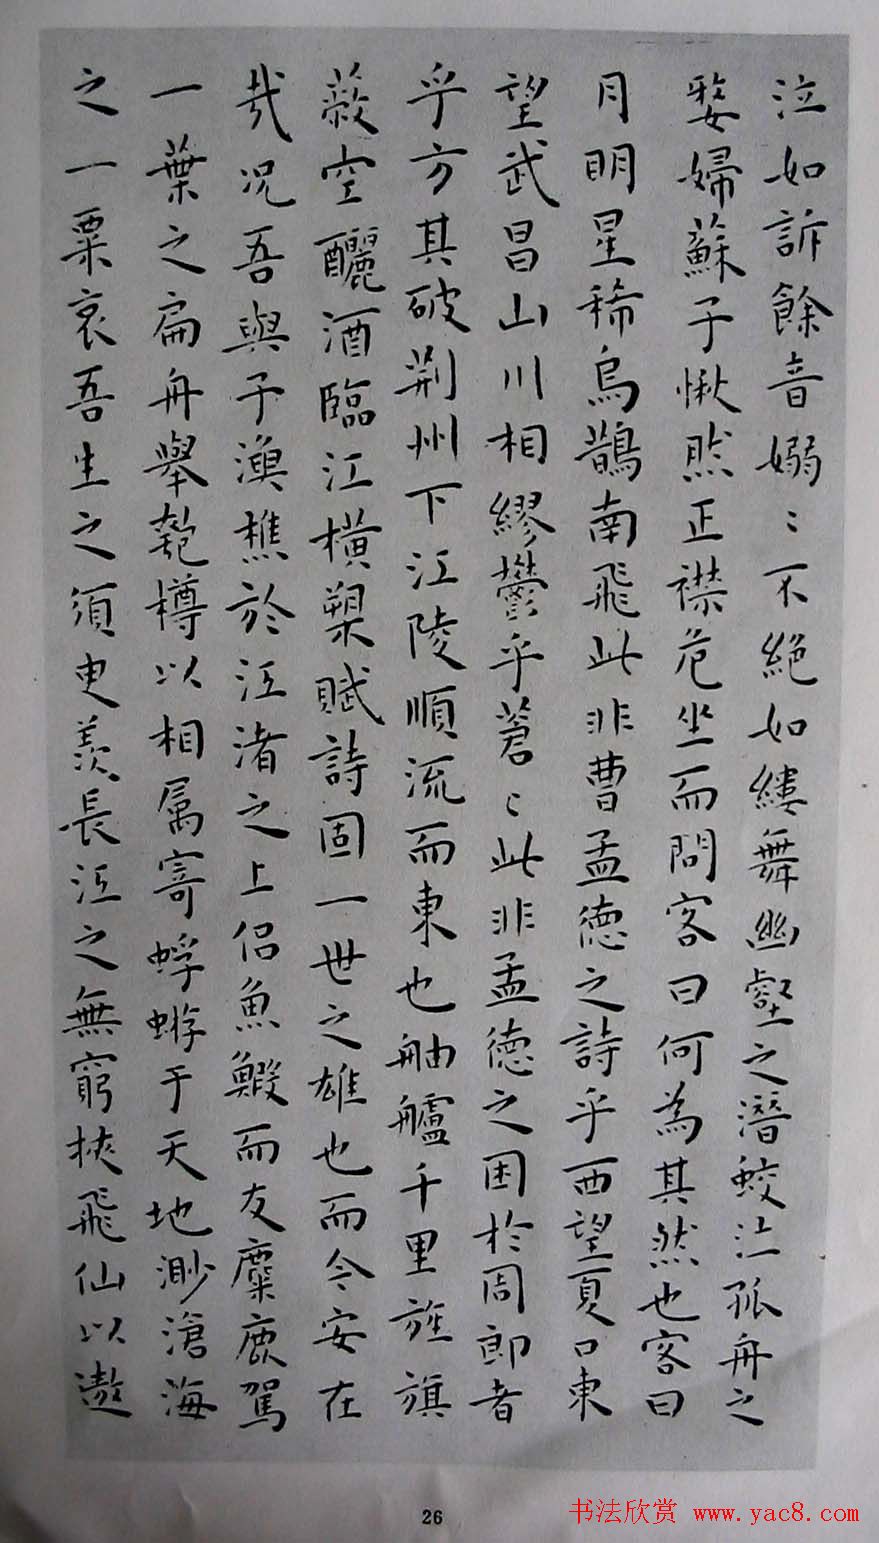 泣如訴餘音嫋〻不絕如縷舞幽壑之潛蛟泣孤舟之
嫠婦蘇子愀然正襟危坐而問客曰何為其然也客曰
月明星稀烏鵲南飛此非曹孟德之詩乎西望夏口東
望武昌山川相繆鬱乎蒼〻此非孟德之困於周郎者
乎方其破荊州下江陵順流而東也舳艫千里旌旗
蔽空釃酒臨江橫槊賦詩固一世之雄也而今安在
哉况吾與子漁樵於江渚之上侶魚鰕而友麋鹿駕
一葉之扁舟舉匏樽以相属寄蜉蝣于天地渺滄海
之一粟哀吾生之須臾羨長江之無窮挾飛仙以遨
26
书法欣赏 www.yac8.com